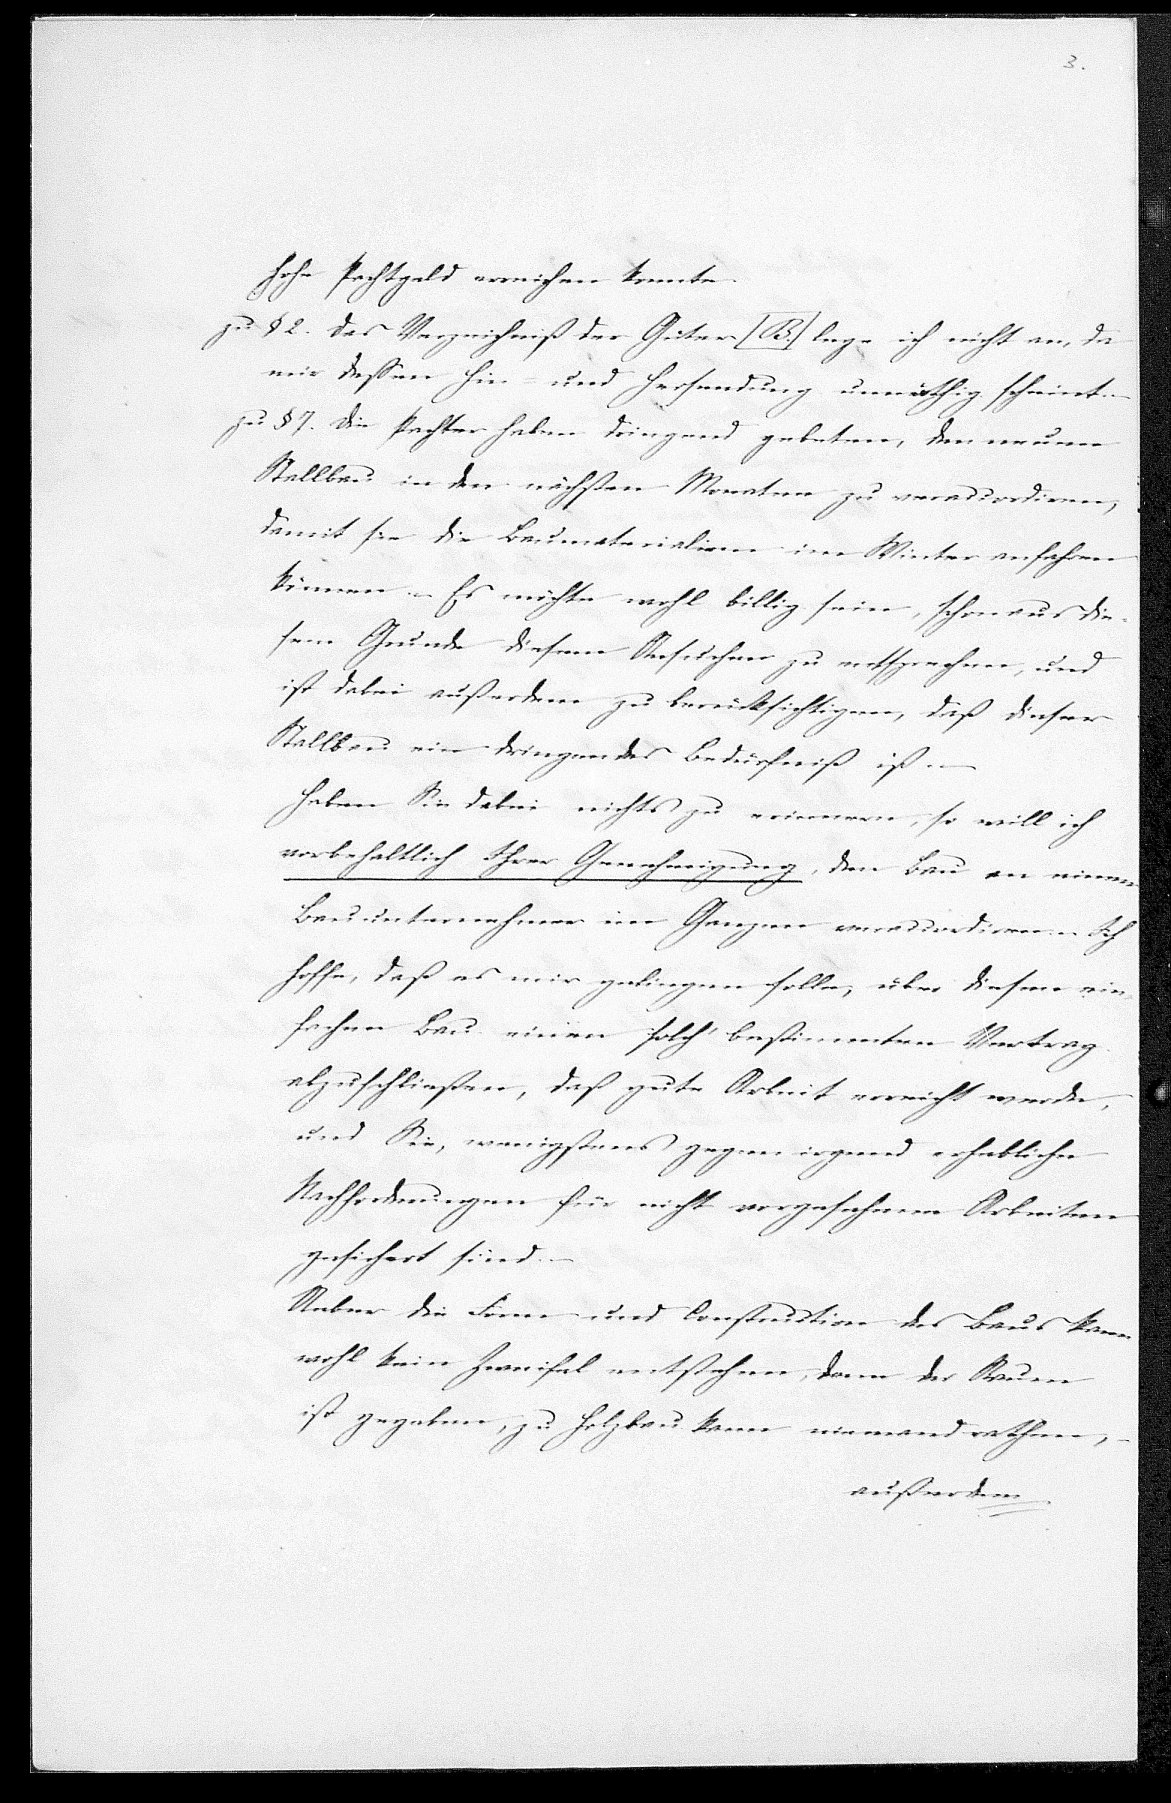 3.
hohe Pachtgeld erreichen konnte.
zu § 2. Das Verzeichniß der Güter [B.] lege ich nicht an, da
mir dessen Hin- und Hersendung unnöthig scheint.
zu § 7. Die Pächter haben dringend gebeten, den neuen
Stallbau in den nächsten Monaten zu veraccordiren,
damit sie die Baumaterialien im Winter anfahren
können. – Es möchte wohl billig sein, schon aus die-
sem Grunde diesem Ansuchen zu entsprechen, und
ist dabei außerdem zu berücksichtigen, daß dieser
Stallbau ein dringendes Bedürfniß ist. –
Haben Sie dabei nichts zu erinnern, so will ich
vorbehaltlich Ihrer Genehmigung, den Bau an einen
Bauunternehmer im Ganzen veraccordiren. – Ich
hoffe, daß es mir gelingen solle, über diesen ein-
fachen Bau einen solch' bestimmten Vertrag
abzuschließen, daß gute Arbeit erreicht werde,
und Sie, wenigstens gegen irgend erhebliche
Nachforderungen für nicht vorgesehene Arbeiten
gesichert sind. –
Ueber die Form und Construction des Baus kann
wohl kein Zweifel entstehen, denn der Raum
ist gegeben, zu Holzbau kann niemand rathen, –
außerdem